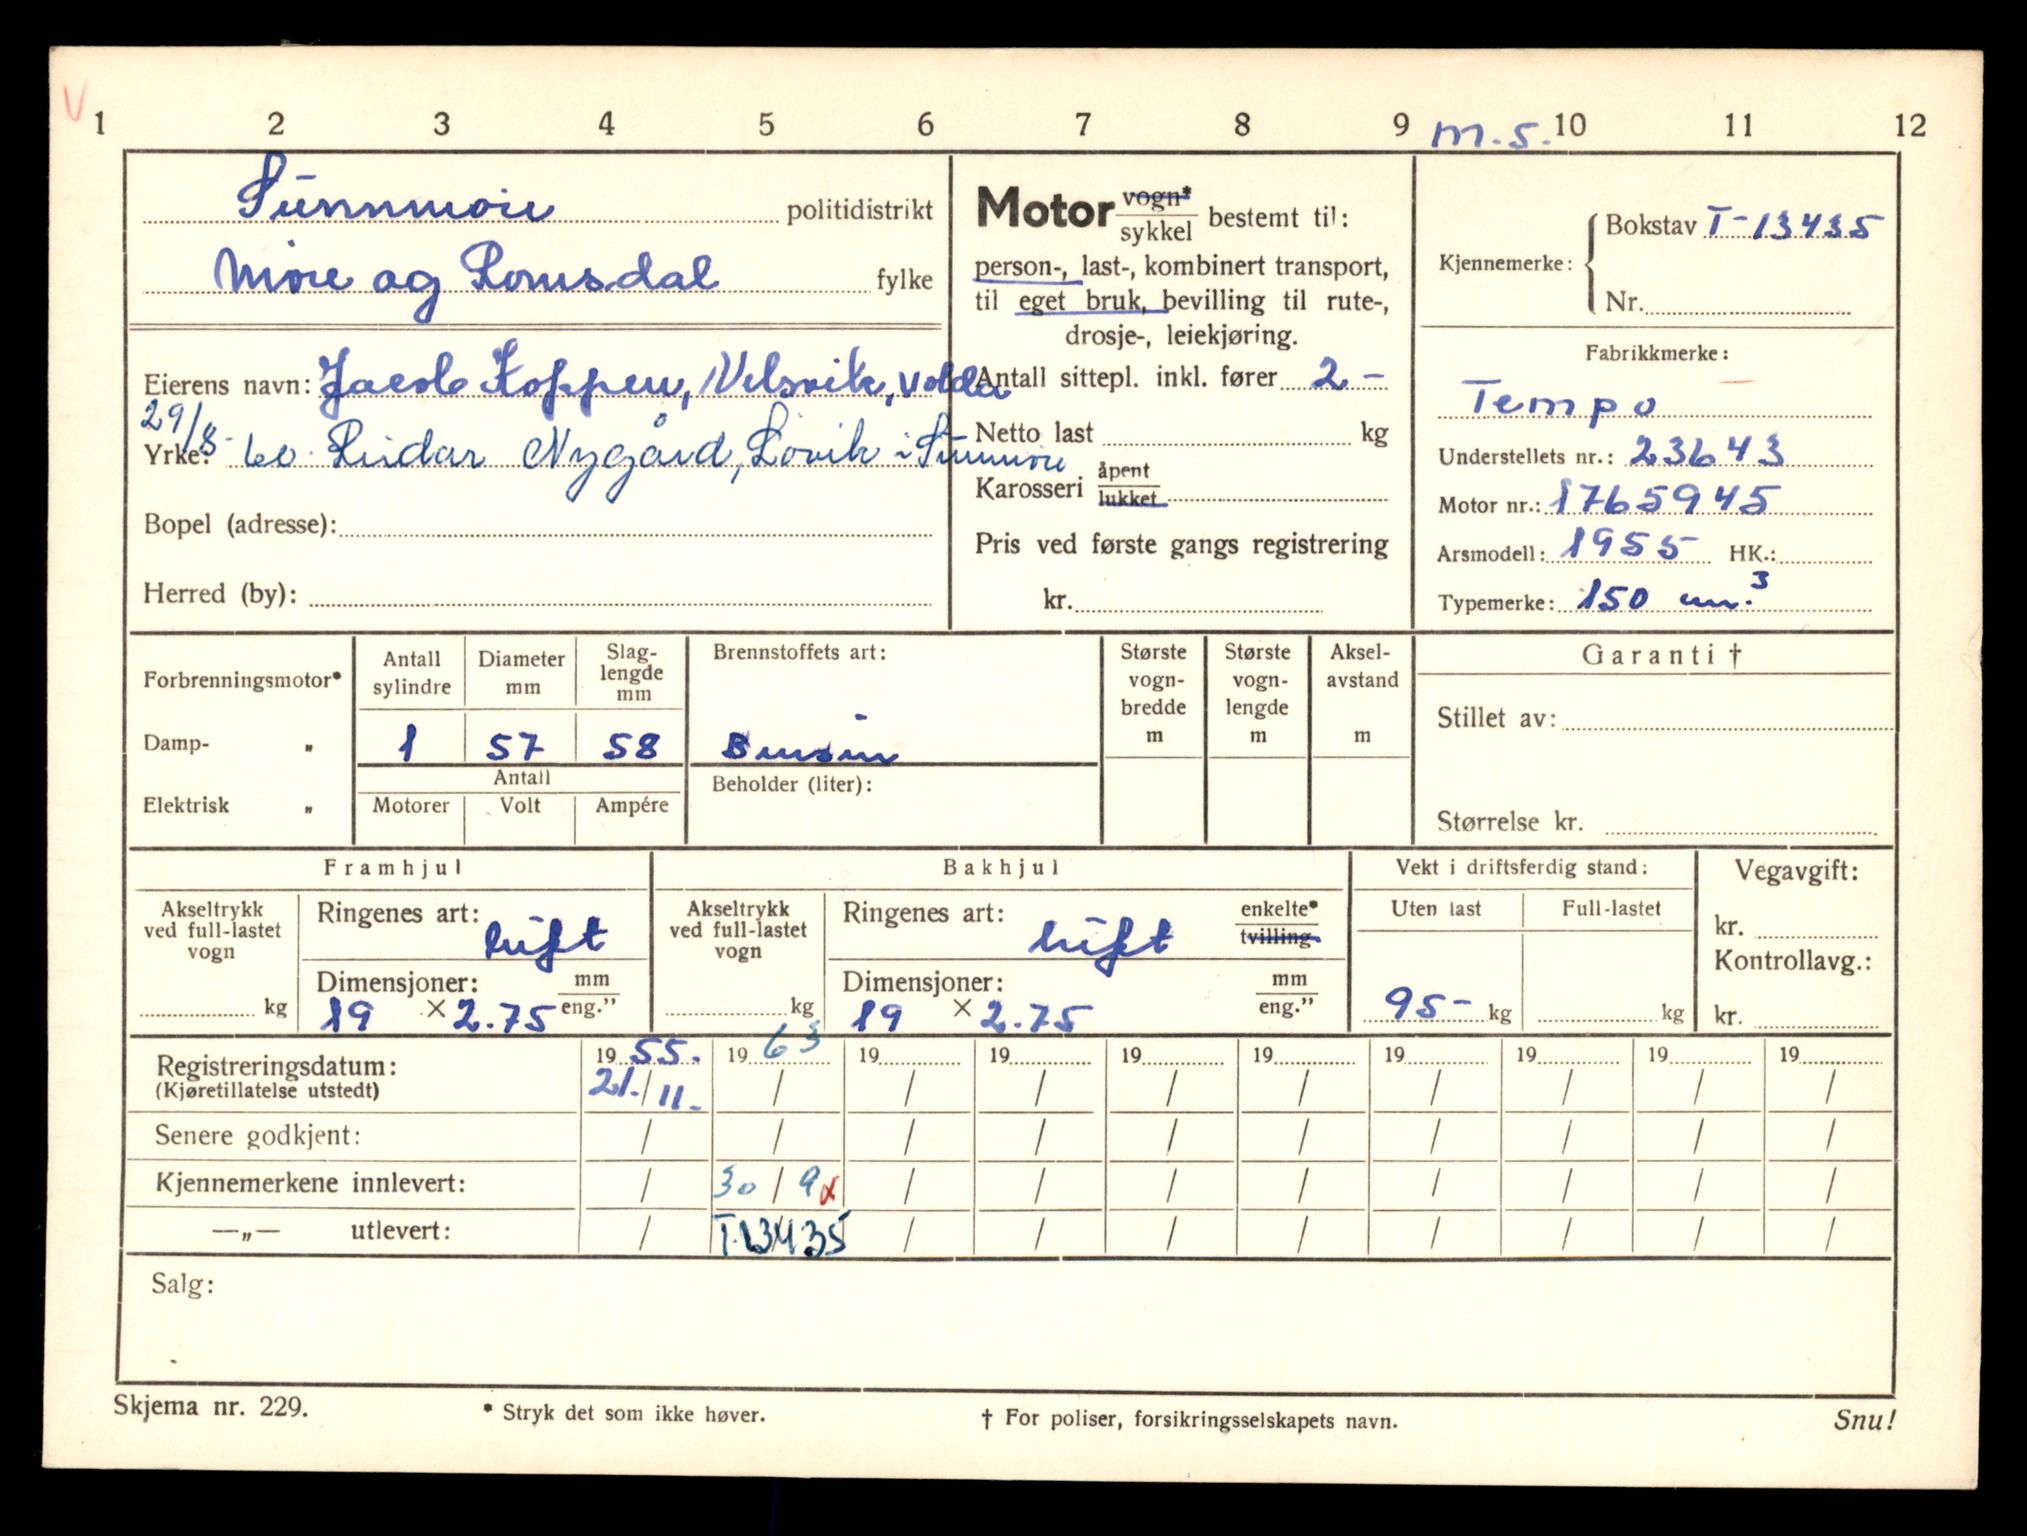 V
1 2 3 4 5 6 7 8 9 m.s. 10 11 12
Sunnmøre politidistrikt
Møre og Romsdal fylke
Eierens navn: Jacob Koppen, Velsvik, Volda
29/8-60. Reidar Nygård, Løvik i Sunnmøre
Yrke:
Bopel (adresse):
Herred (by):
Motor vogn* sykkel bestemt til:
person-, last-, kombinert transport,
til eget bruk, bevilling til rute-,
drosje-, leiekjøring.
Antall sittepl. inkl. fører 2 -
Netto last kg
Karosseri åpent lukket
Pris ved første gangs registrering
kr.
Kjennemerke: Bokstav T-13435
Nr.
Fabrikkmerke:
Tempo
Understellets nr.: 23643
Motor nr.: 1765945
Arsmodell: 1955 HK.:
Typemerke: 150 cm.³
Forbrenningsmotor*
Damp- „
Elektrisk „
Antall sylindre 1
Diameter mm 57
Slag-lengde mm 58
Antall
Motorer Volt Ampére
Brennstoffets art:
Bensin
Beholder (liter):
Største vogn-bredde m
Største vogn-lengde m
Aksel-avstand m
Garanti †
Stillet av:
Størrelse kr.
Framhjul
Akseltrykk ved full-lastet vogn
kg
Ringenes art: luft
Dimensjoner: mm
19 × 2.75 eng.”
Bakhjul
Akseltrykk ved full-lastet vogn
kg
Ringenes art: luft enkelte* tvilling
Dimensjoner: mm
19 × 2.75 eng.”
Vekt i driftsferdig stand:
Uten last Full-lastet
95- kg kg
Vegavgift:
kr.
Kontrollavg.:
kr.
Registreringsdatum: 19 55. 19 63 19 19 19 19 19 19 19 19
(Kjøretillatelse utstedt) 21./11. / / / / / / / / /
Senere godkjent: / / / / / / / / / /
Kjennemerkene innlevert: / 30/9 / / / / / / / /
—„— utlevert: / T-13435 / / / / / / / /
Salg:
Skjema nr. 229.
* Stryk det som ikke høver.
† For poliser, forsikringsselskapets navn.
Snu!